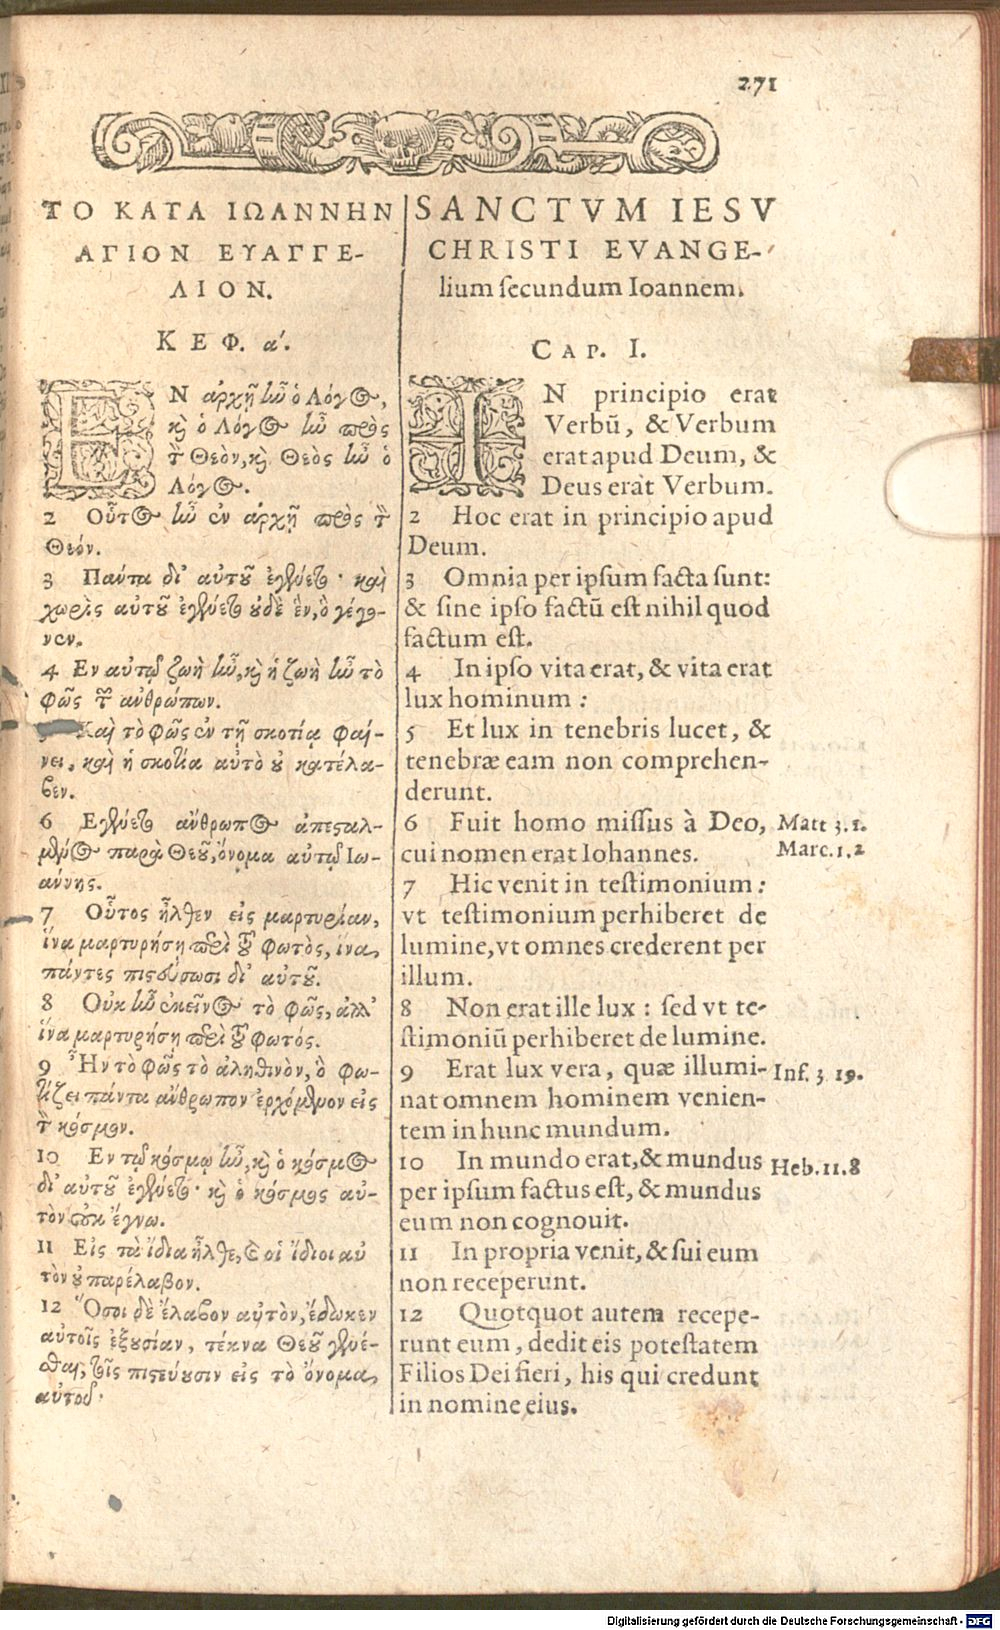 271
ΤΟ ΚΑΤΑ ΙΩΑΝΝΗΝ
ΑΓΙΟΝ ΕΥΑΓΓΕ-
ΛΙΟΝ.
ΚΕΦ. α΄.
ΕΝ ἀρχῇ ἦν ὁ Λόγος,
καὶ ὁ Λόγος ἦν πρὸς
τὸν Θεὸν, καὶ Θεὸς ἦν ὁ
Λόγος.
2 Οὗτος ἦν ἐν ἀρχῇ πρὸς τὸν
Θεόν.
3 Πάντα δι' αὐτοῦ ἐγένετο· καὶ
χωρὶς αὐτοῦ ἐγένετο οὐδὲ ἓν, ὃ γέγο-
νεν.
4 Εν αὐτῷ ζωὴ ἦν, καὶ ἡ ζωὴ ἦν τὸ
φῶς τῶν ἀνθρώπων.
5 Καὶ τὸ φῶς ἐν τῇ σκοτίᾳ φαί-
νει, καὶ ἡ σκοτία αὐτὸ οὐ κατέλα-
βεν.
6 Εγένετο ἄνθρωπος ἀπεσταλ-
μένος παρὰ Θεοῦ, ὄνομα αὐτῷ Ἰω-
άννης.
7 Οὗτος ἦλθεν εἰς μαρτυρίαν,
ἵνα μαρτυρήσῃ περὶ τοῦ φωτὸς, ἵνα
πάντες πιστεύσωσι δι' αὐτοῦ.
8 Οὐκ ἦν ἐκεῖνος τὸ φῶς, ἀλλ'
ἵνα μαρτυρήσῃ περὶ τοῦ φωτός.
9 Ἦν τὸ φῶς τὸ ἀληθινὸν, ὃ φω-
τίζει πάντα ἄνθρωπον ἐρχόμενον εἰς
τὸν κόσμον.
10 Εν τῷ κόσμῳ ἦν, καὶ ὁ κόσμος
δι' αὐτοῦ ἐγένετο· καὶ ὁ κόσμος αὐ-
τὸν οὐκ ἔγνω.
11 Εἰς τὰ ἴδια ἦλθε, καὶ οἱ ἴδιοι αὐ
τὸν οὐ παρέλαβον.
12 Ὅσοι δὲ ἔλαβον αὐτὸν, ἔδωκεν
αὐτοῖς ἐξουσίαν, τέκνα Θεοῦ γενέ-
σθαι, τοῖς πιστεύουσιν εἰς τὸ ὄνομα
αὐτοῦ·
SANCTVM IESV
CHRISTI EVANGE-
lium secundum Ioannem.
CAP. I.
IN principio erat
Verbū, & Verbum
erat apud Deum, &
Deus erat Verbum.
2 Hoc erat in principio apud
Deum.
3 Omnia per ipsum facta sunt:
& sine ipso factū est nihil quod
factum est.
4 In ipso vita erat, & vita erat
lux hominum :
5 Et lux in tenebris lucet, &
tenebræ eam non comprehen-
derunt.
6 Fuit homo missus à Deo,
cui nomen erat Iohannes.
7 Hic venit in testimonium:
vt testimonium perhiberet de
lumine, vt omnes crederent per
illum.
8 Non erat ille lux : sed vt te-
stimoniū perhiberet de lumine.
9 Erat lux vera, quæ illumi-
nat omnem hominem venien-
tem in hunc mundum.
10 In mundo erat, & mundus
per ipsum factus est, & mundus
eum non cognouit.
11 In propria venit, & sui eum
non receperunt.
12 Quotquot autem recepe-
runt eum, dedit eis potestatem
Filios Dei fieri, his qui credunt
in nomine eius.
Matt 3.1.
Marc.1.2
Inf. 3 19.
Heb.11.8
Digitalisierung gefördert durch die Deutsche Forschungsgemeinschaft - DFG